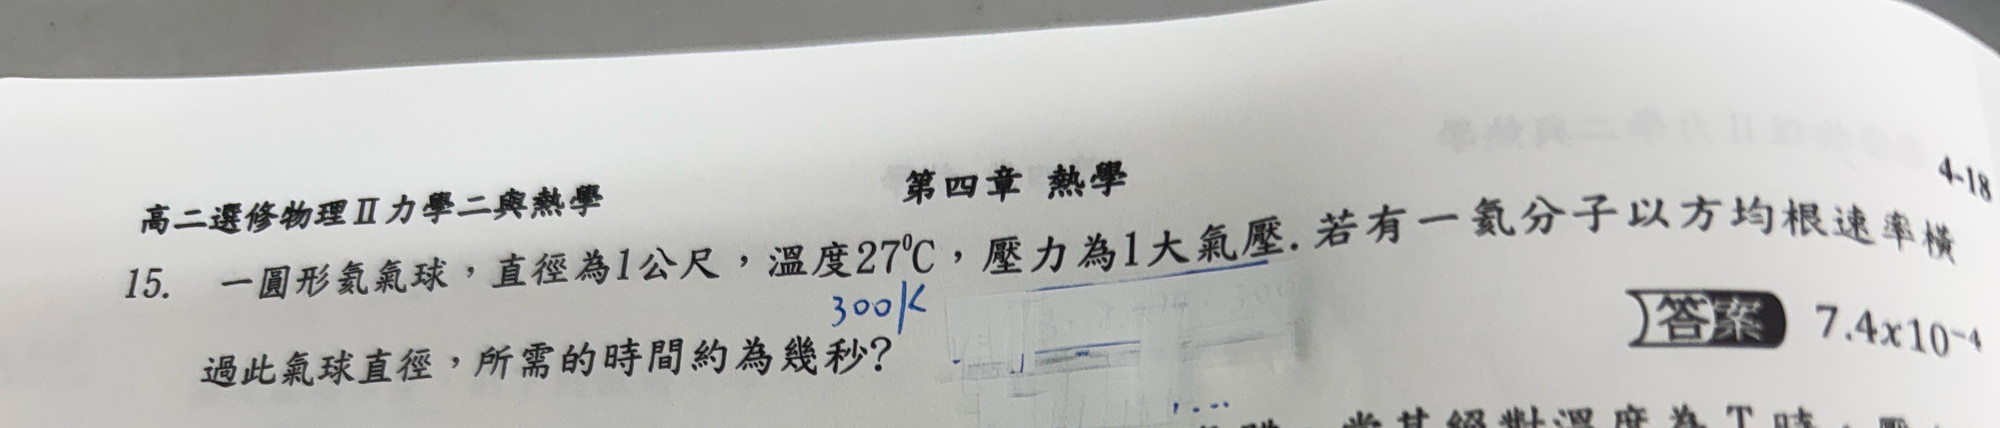 高二選修物理Ⅱ力學二與熱學 第四章 熱學 4-18
15. 一圓形氦氣球，直徑為1公尺，溫度27⁰C，壓力為1大氣壓.若有一氦分子以方均根速率橫
300K
過此氣球直徑，所需的時間約為幾秒? 答案 7.4x10⁻⁴
當其絕對溫度為T時，